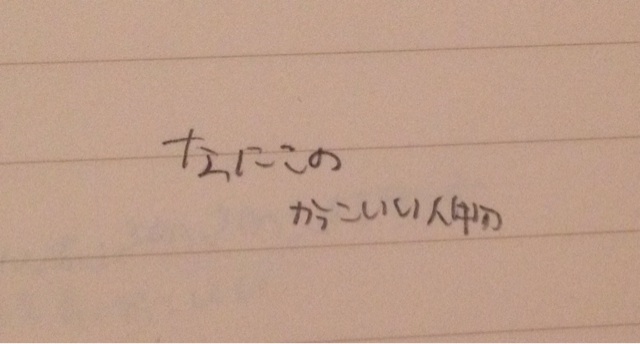 なにこの
かっこいい人物